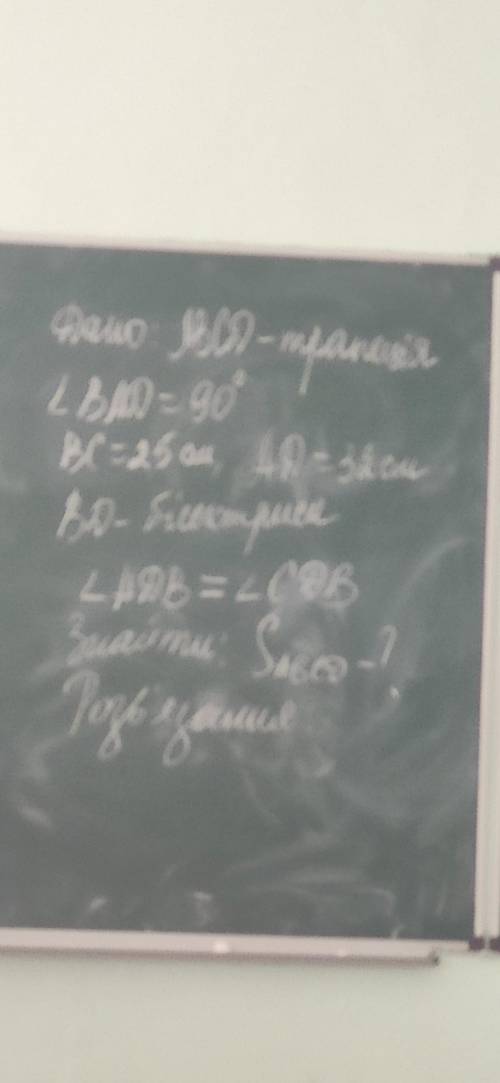 Дано: ABCD - трапеція
∠BAD = 90°
BC = 25 см, AD = 32 см
BD - бісектриса
∠ADB = ∠CDB
Знайти: S ABCD - ?
Розв'язання